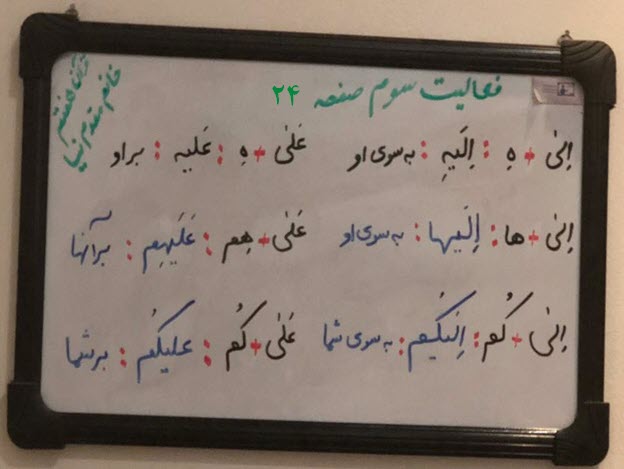 فعالیت سوم صفحه ۲۴
قرآن هفتم
خانم مقدم نیا
اِلىٰ + هِ : اِلَیهِ : به سوی او عَلىٰ + هِ : عَلیه : بر او
اِلىٰ + ها : اِلَیها : به سوی او عَلىٰ + هِم : عَلَیهِم : بر آنها
اِلىٰ + کُم : اِلَیکُم : به سوی شما عَلىٰ + کُم : علیکُم : بر شما